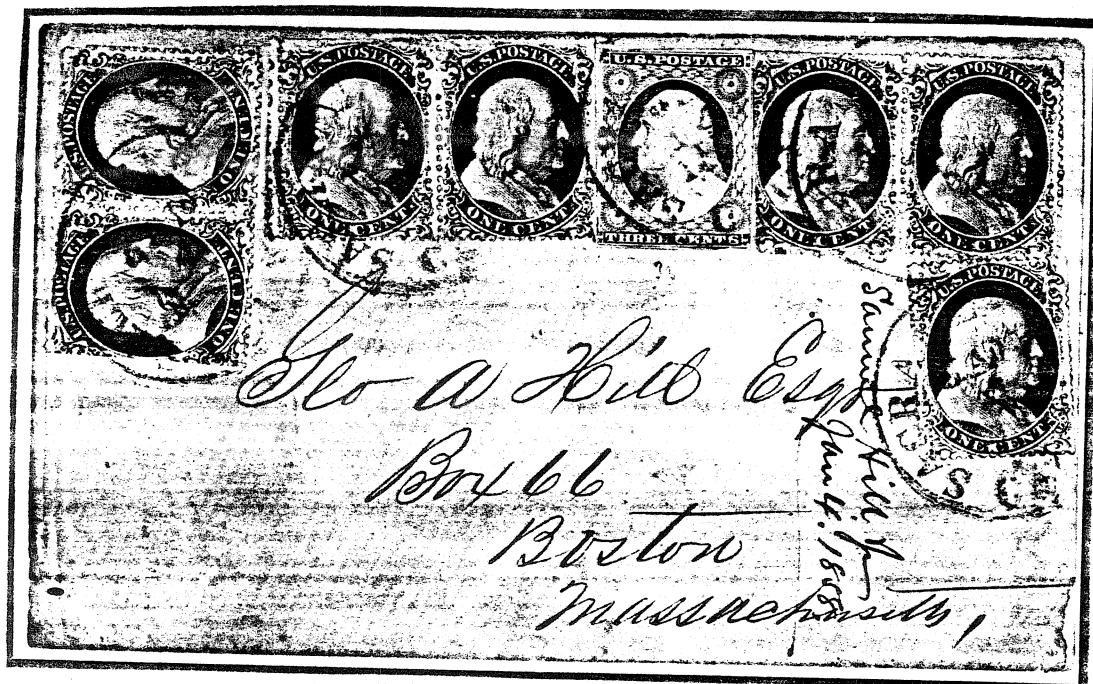 U.S. POSTAGE
ONE CENT
U.S. POSTAGE
ONE CENT
U.S. POSTAGE
ONE CENT
U.S. POSTAGE
ONE CENT
U.S. POSTAGE
THREE CENTS
U.S. POSTAGE
ONE CENT
U.S. POSTAGE
ONE CENT
U.S. POSTAGE
ONE CENT
Geo A Hill Esqre
Box 66
Boston
Massachusetts,
Samuel Hill Jr
Jan 4.